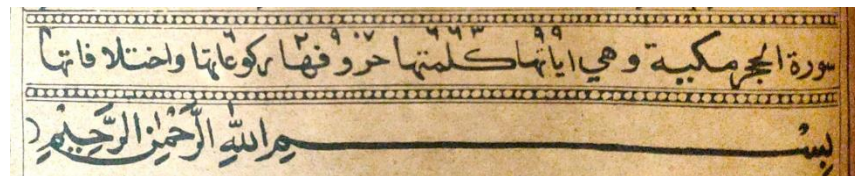 سورة الحجر مكية وهي اياتها ٩٩ كلمتها ٦٦٣ حروفها ركوعاتها واختلافاتها
بِسْمِ اللهِ الرَّحْمٰنِ الرَّحِيْمِ